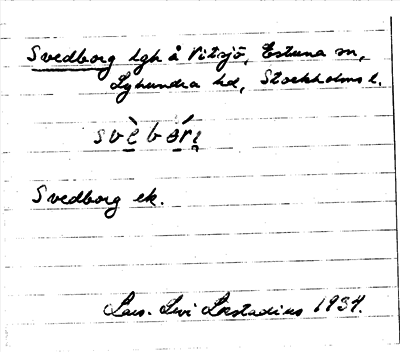 Svedborg lgh å Vitsjö, Estuna sn,
Lyhundra hd, Stockholms l.
Svedborg ek.
Lars-Levi Læstadius 1934.